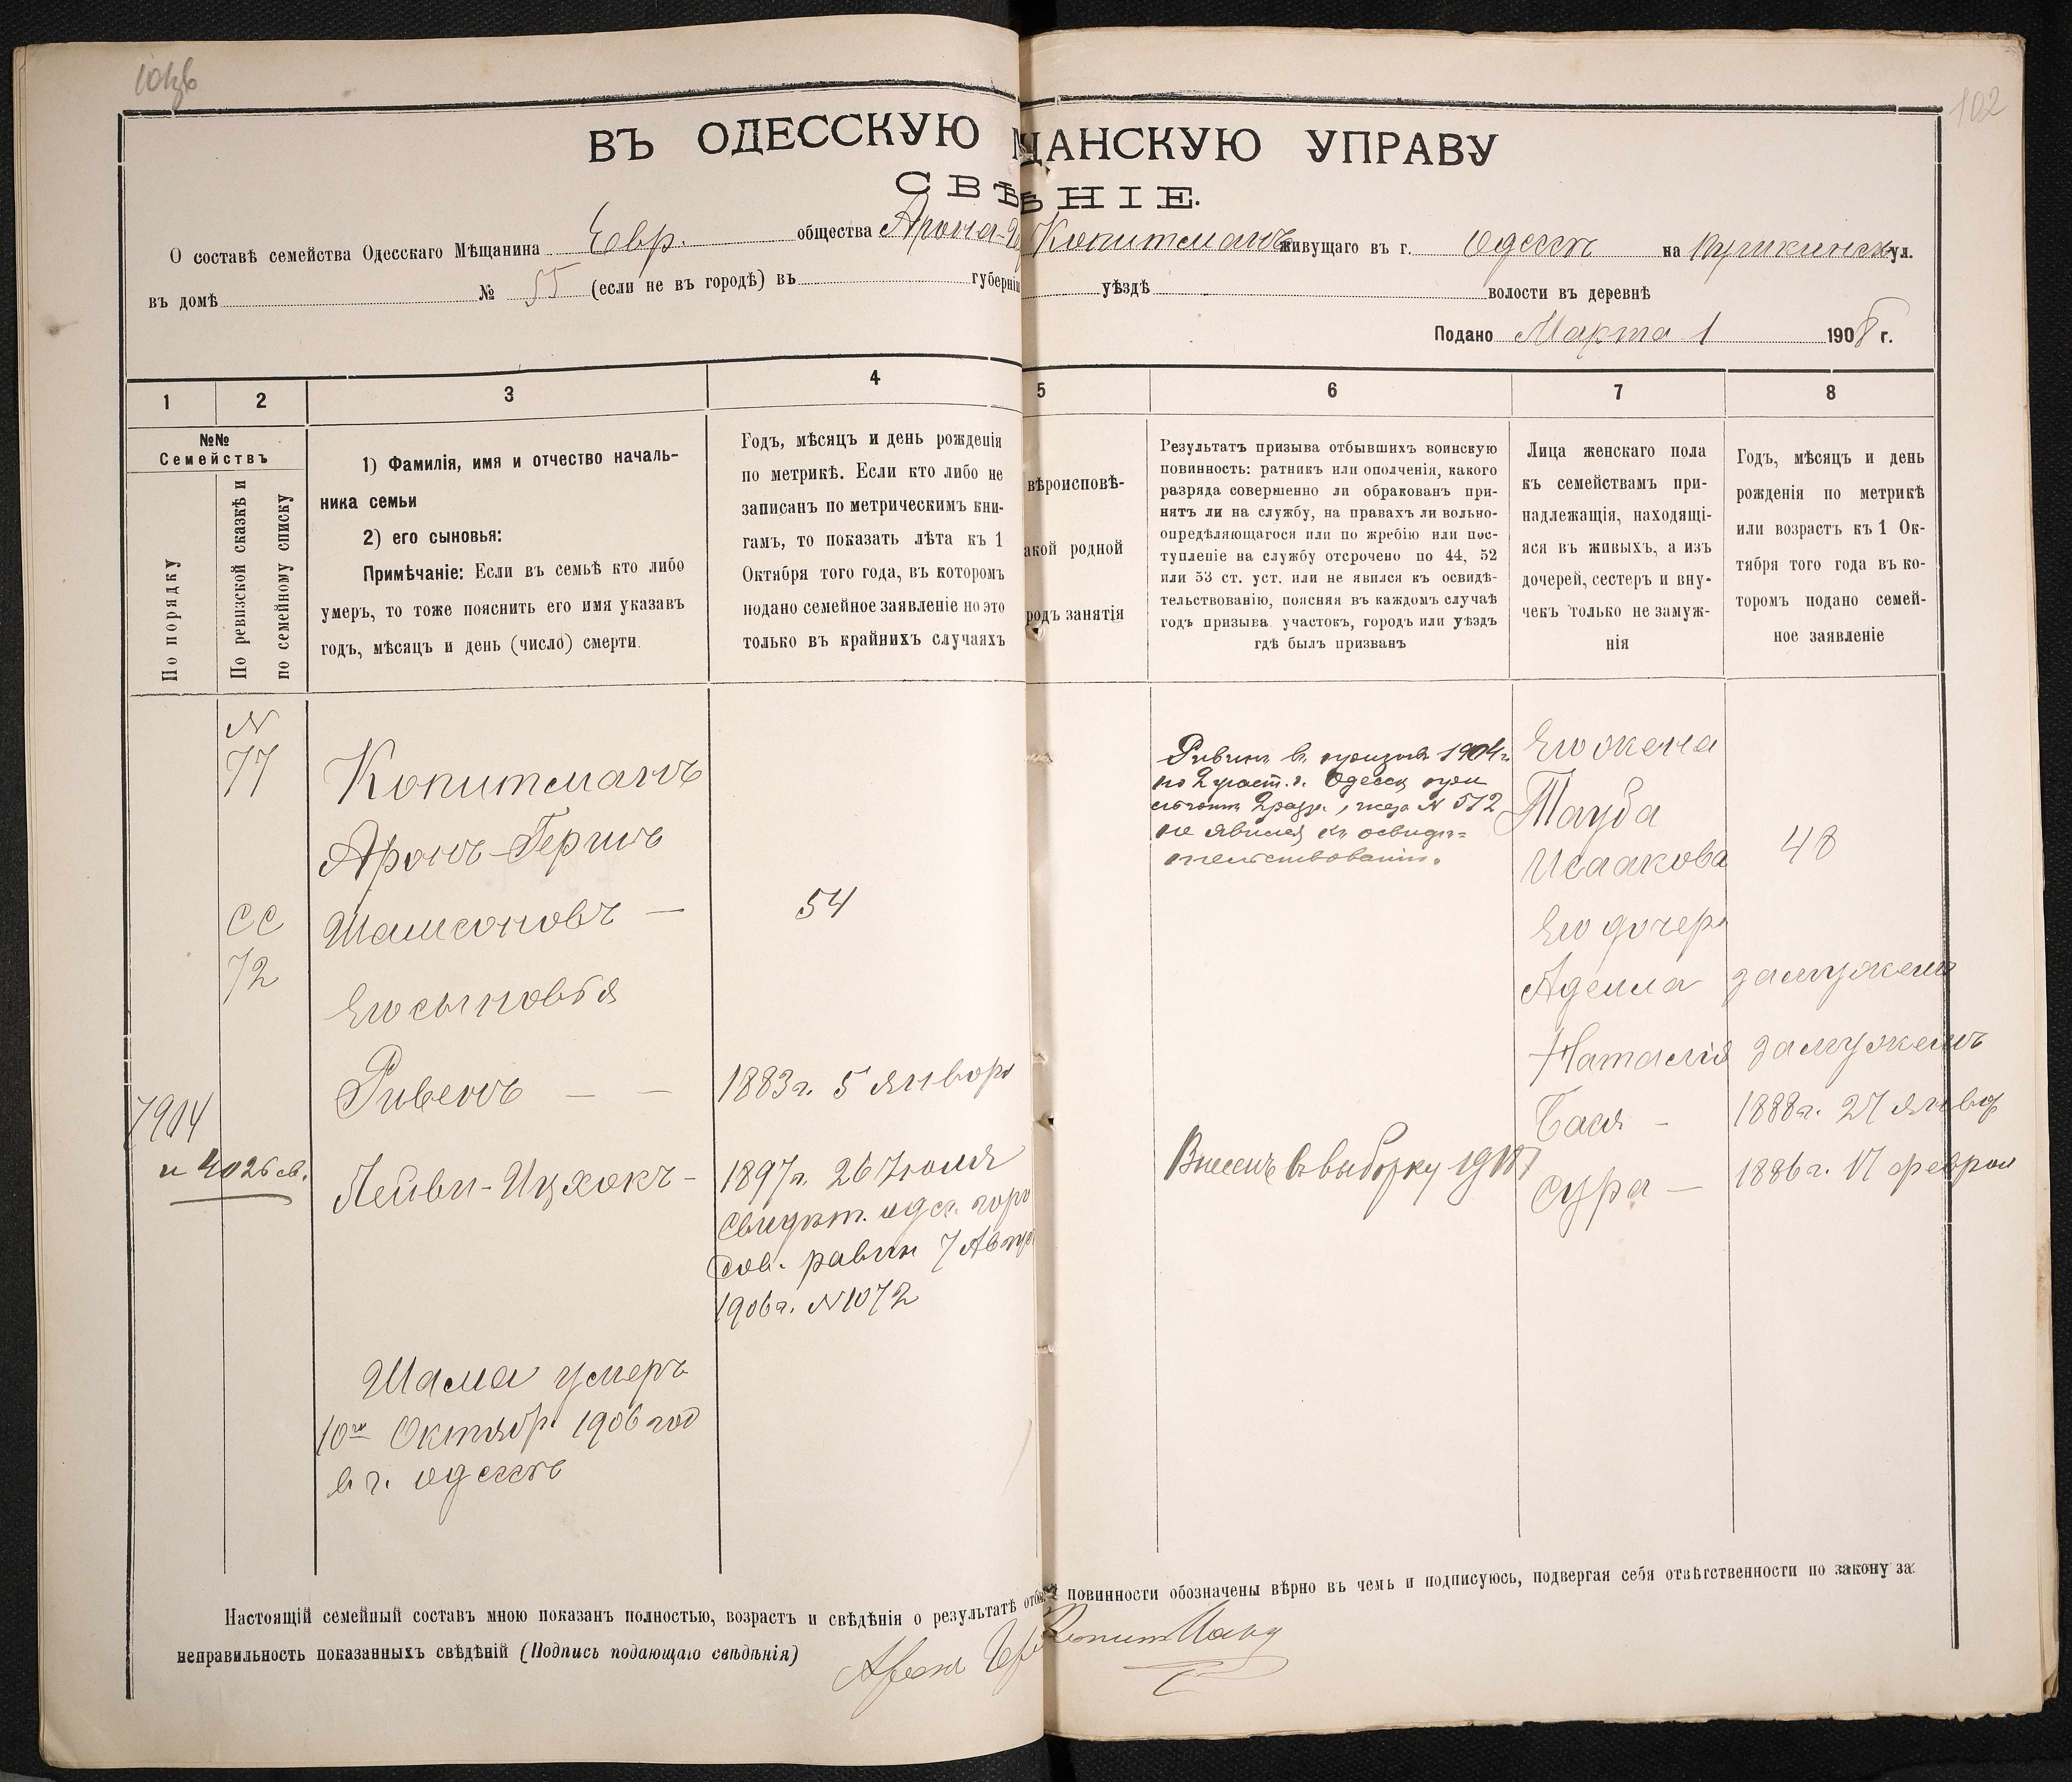 102
ВЪ ОДЕССКУЮ ЩАНСКУЮ УПРАВУ
СВѢ ѢНІЕ.
О составѣ семейства Одесскаго Мѣщанина Евр. общества Арона- Копитманъ живущаго въ г. Одессѣ на Пушкинск ул.
въ домѣ № 55 (если не въ городѣ) въ губерніи уѣздѣ волости въ деревнѣ
Подано Марта 1 1908 г.
1 2 3 4 5 6 7 8
№№
Семействъ
По порядку
По ревизской сказкѣ и
по семейному списку
1) Фамилія, имя и отчество началь-
ника семьи
2) его сыновья:
Примѣчаніе: Если въ семьѣ кто либо
умеръ, то тоже пояснить его имя указавъ
годъ, мѣсяцъ и день (число) смерти.
Годъ, мѣсяцъ и день рожденія
по метрикѣ. Если кто либо не
записанъ по метрическимъ кни-
гамъ, то показать лѣта къ 1
Октября того года, въ которомъ
подано семейное заявленіе но это
только въ крайнихъ случаяхъ
вѣроисповѣ-
акой родной
родъ занятія
Результатъ призыва отбывшихъ воинскую
повинность: ратникъ или ополченія, какого
разряда совершенно ли обракованъ при-
нятъ ли на службу, на правахъ ли вольно-
опредѣляющагося или по жребію или пос-
тупленіе на службу отсрочено по 44, 52
или 53 ст. уст. или не явился къ освидѣ-
тельствованію, поясняя въ каждомъ случаѣ
годъ призыва участокъ, городъ или уѣздъ
гдѣ былъ призванъ
Лица женскаго пола
къ семействамъ при-
надлежащія, находящі-
яся въ живыхъ, а изъ
дочерей, сестеръ и вну-
чекъ только не замуж-
нія
Годъ, мѣсяцъ и день
рожденія по метрикѣ
или возрастъ къ 1 Ок-
тября того года въ ко-
торомъ подано семей-
ное заявленіе
N
77
СС
72
1904
и 4026 св.
Копитманъ
Аронъ-Гершъ
Шамсоновъ —
Его сыновья
Ривенъ — —
Лейви-Ицхокъ -
Шама умеръ
10го Октябр. 1906 год
в г. Одессѣ
54
1883 г. 5 январ
1897 г. 26 Іюля
свидѣт. одес. горо
равин 7 Авгус
1906 г. N 1072
Ривин в призыв 1904 г.
по 2 участ. г. Одессы при
N 512
не явился къ освидѣ=
тельствованію.
Внесенъ въ выборку
Его жена
Тауба
Исаакова 48
Его дочери
Аделла замужемъ
Наталія замужемъ
Бася - 1888 г. 27 январ
Сура — 1886 г. 17 феврал
Настоящій семейный составъ мною показанъ полностью, возрастъ и свѣдѣнія о результатѣ отбы повинности обозначены вѣрно въ чемъ и подписуюсь, подвергая себя отвѣтственности по закону за
неправильность показанныхъ свѣдѣній (Подпись подающаго свѣдѣнія) Арона Гер Копитманъ